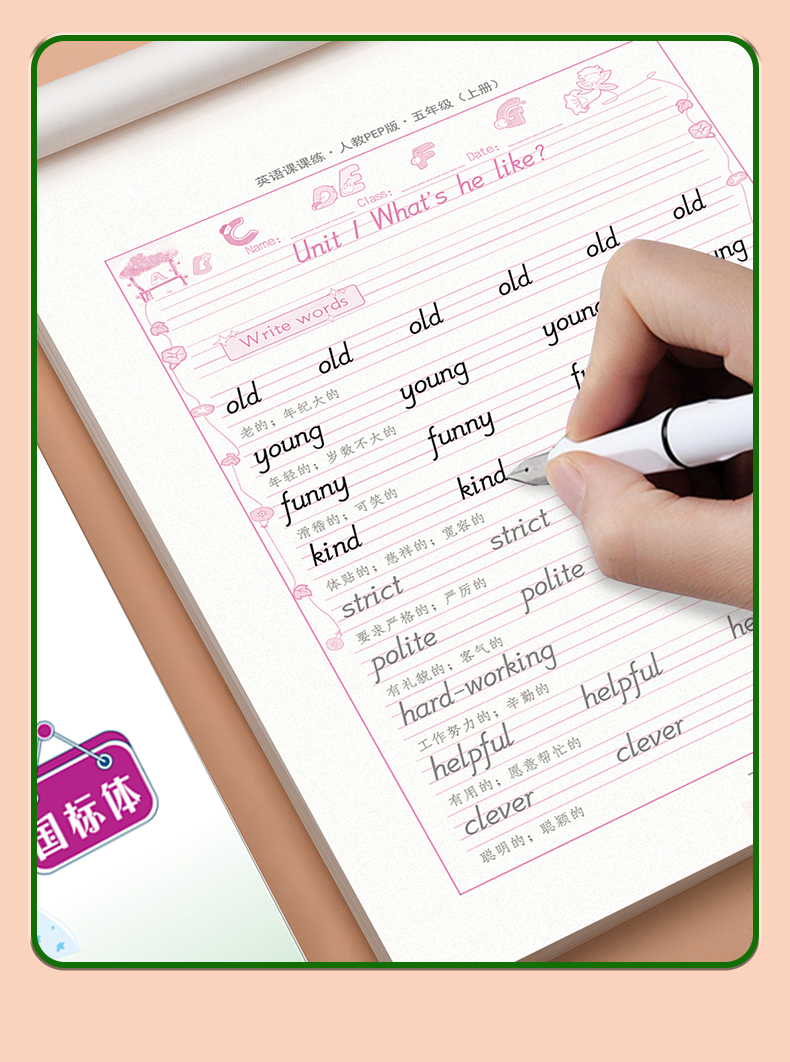 英语课课练·人教PEP版·五年级（上册）
A B C D E F G
Name: Class: Date:
Unit 1 What's he like?
Write words
old old old old old old
老的；年纪大的
young young
年轻的；岁数不大的
funny funny
滑稽的；可笑的
kind kind
体贴的；慈祥的；宽容的
strict strict
要求严格的；严厉的
polite polite
有礼貌的；客气的
hard-working
工作努力的；辛勤的
helpful helpful
有用的；愿意帮忙的
clever clever
聪明的；聪颖的
国标体